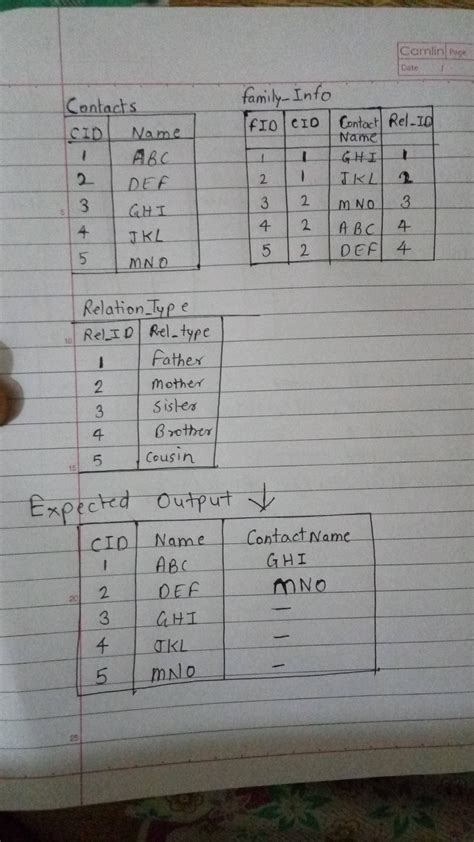 Camlin Page
Date /
Contacts
CID Name
1 ABC
2 DEF
3 GHI
4 JKL
5 MNO
family_Info
FID CID Contact Name Rel_ID
1 1 GHI 1
2 1 JKL 2
3 2 MNO 3
4 2 ABC 4
5 2 DEF 4
Relation_Type
Rel_ID Rel_type
1 Father
2 Mother
3 Sister
4 Brother
5 Cousin
Expected Output ↓
CID Name ContactName
1 ABC GHI
2 DEF MNO
3 GHI –
4 JKL –
5 MNO –
5
10
15
20
25